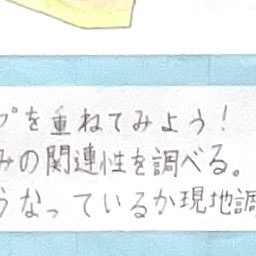 プを重ねてみよう!
みの関連性を調べる。
うなっているか現地調